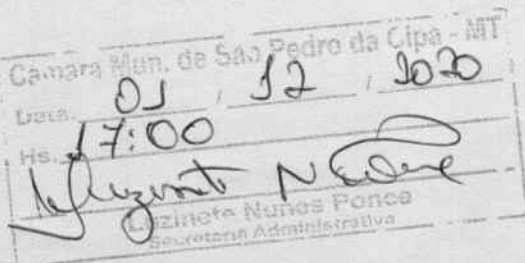 Camara Mun. de São Pedro da Cipa - MT
Data. 01 / 12 / 2020
Hs. 17:00
Luzinete Nunes Ponce
Secretaria Administrativa